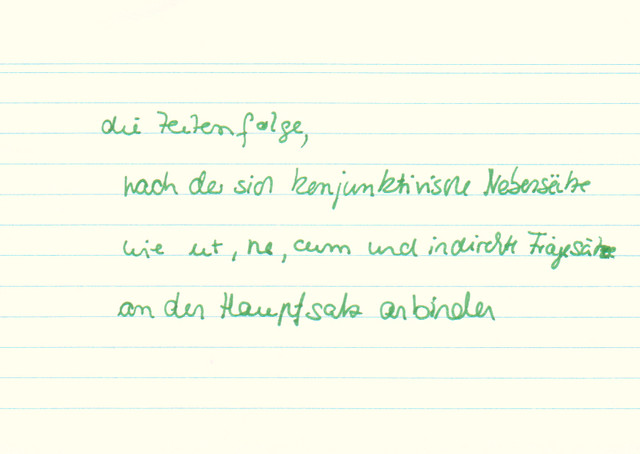 die Zeitenfolge,
nach der sich konjunktivische Nebensätze
wie ut, ne, cum und indirekte Fragesätze
an den Hauptsatz anbinden